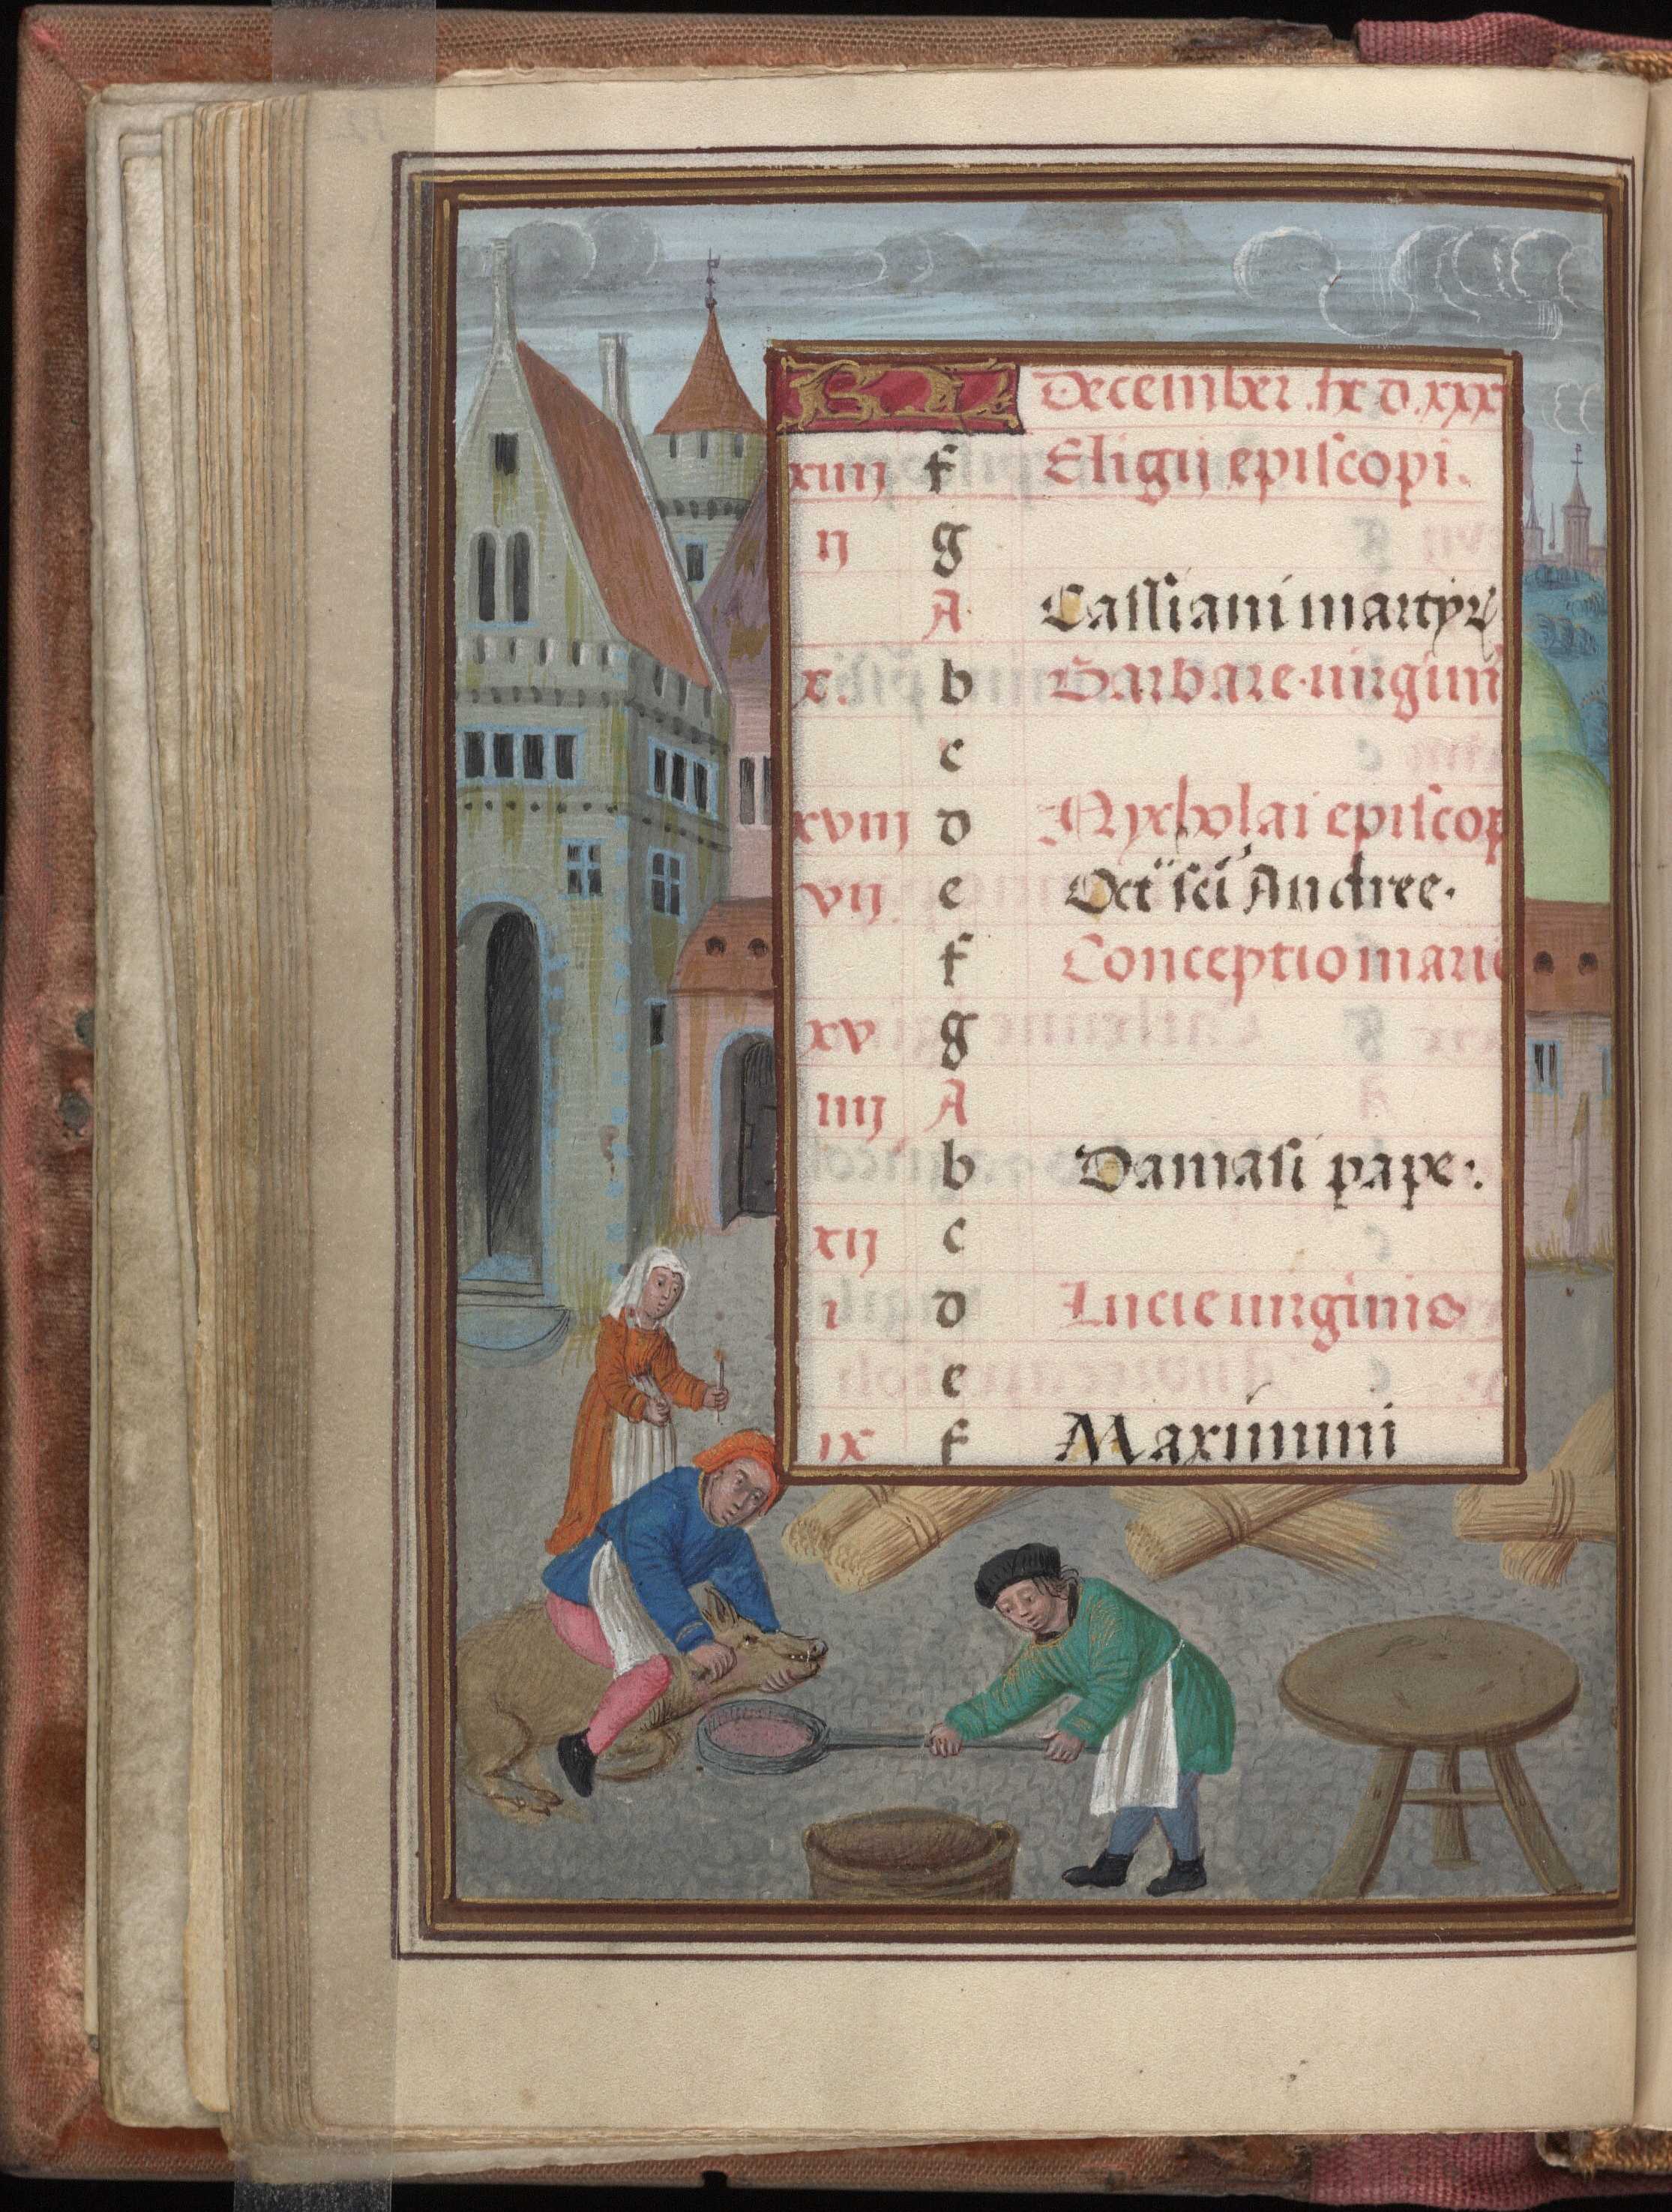 KL December . hꝫ d . xxx
xiiij f Eligij episcopi.
ij g
A Cassiani martyrꝭ
x. b Barbare uirgini
c
xviij d Nycholai episcop
vij e Oct sci Andree.
f Conceptio marie
xv g
iiij A
b Damasi pape.
xij c
i d Lucie uirginis
e
ix f Maximini